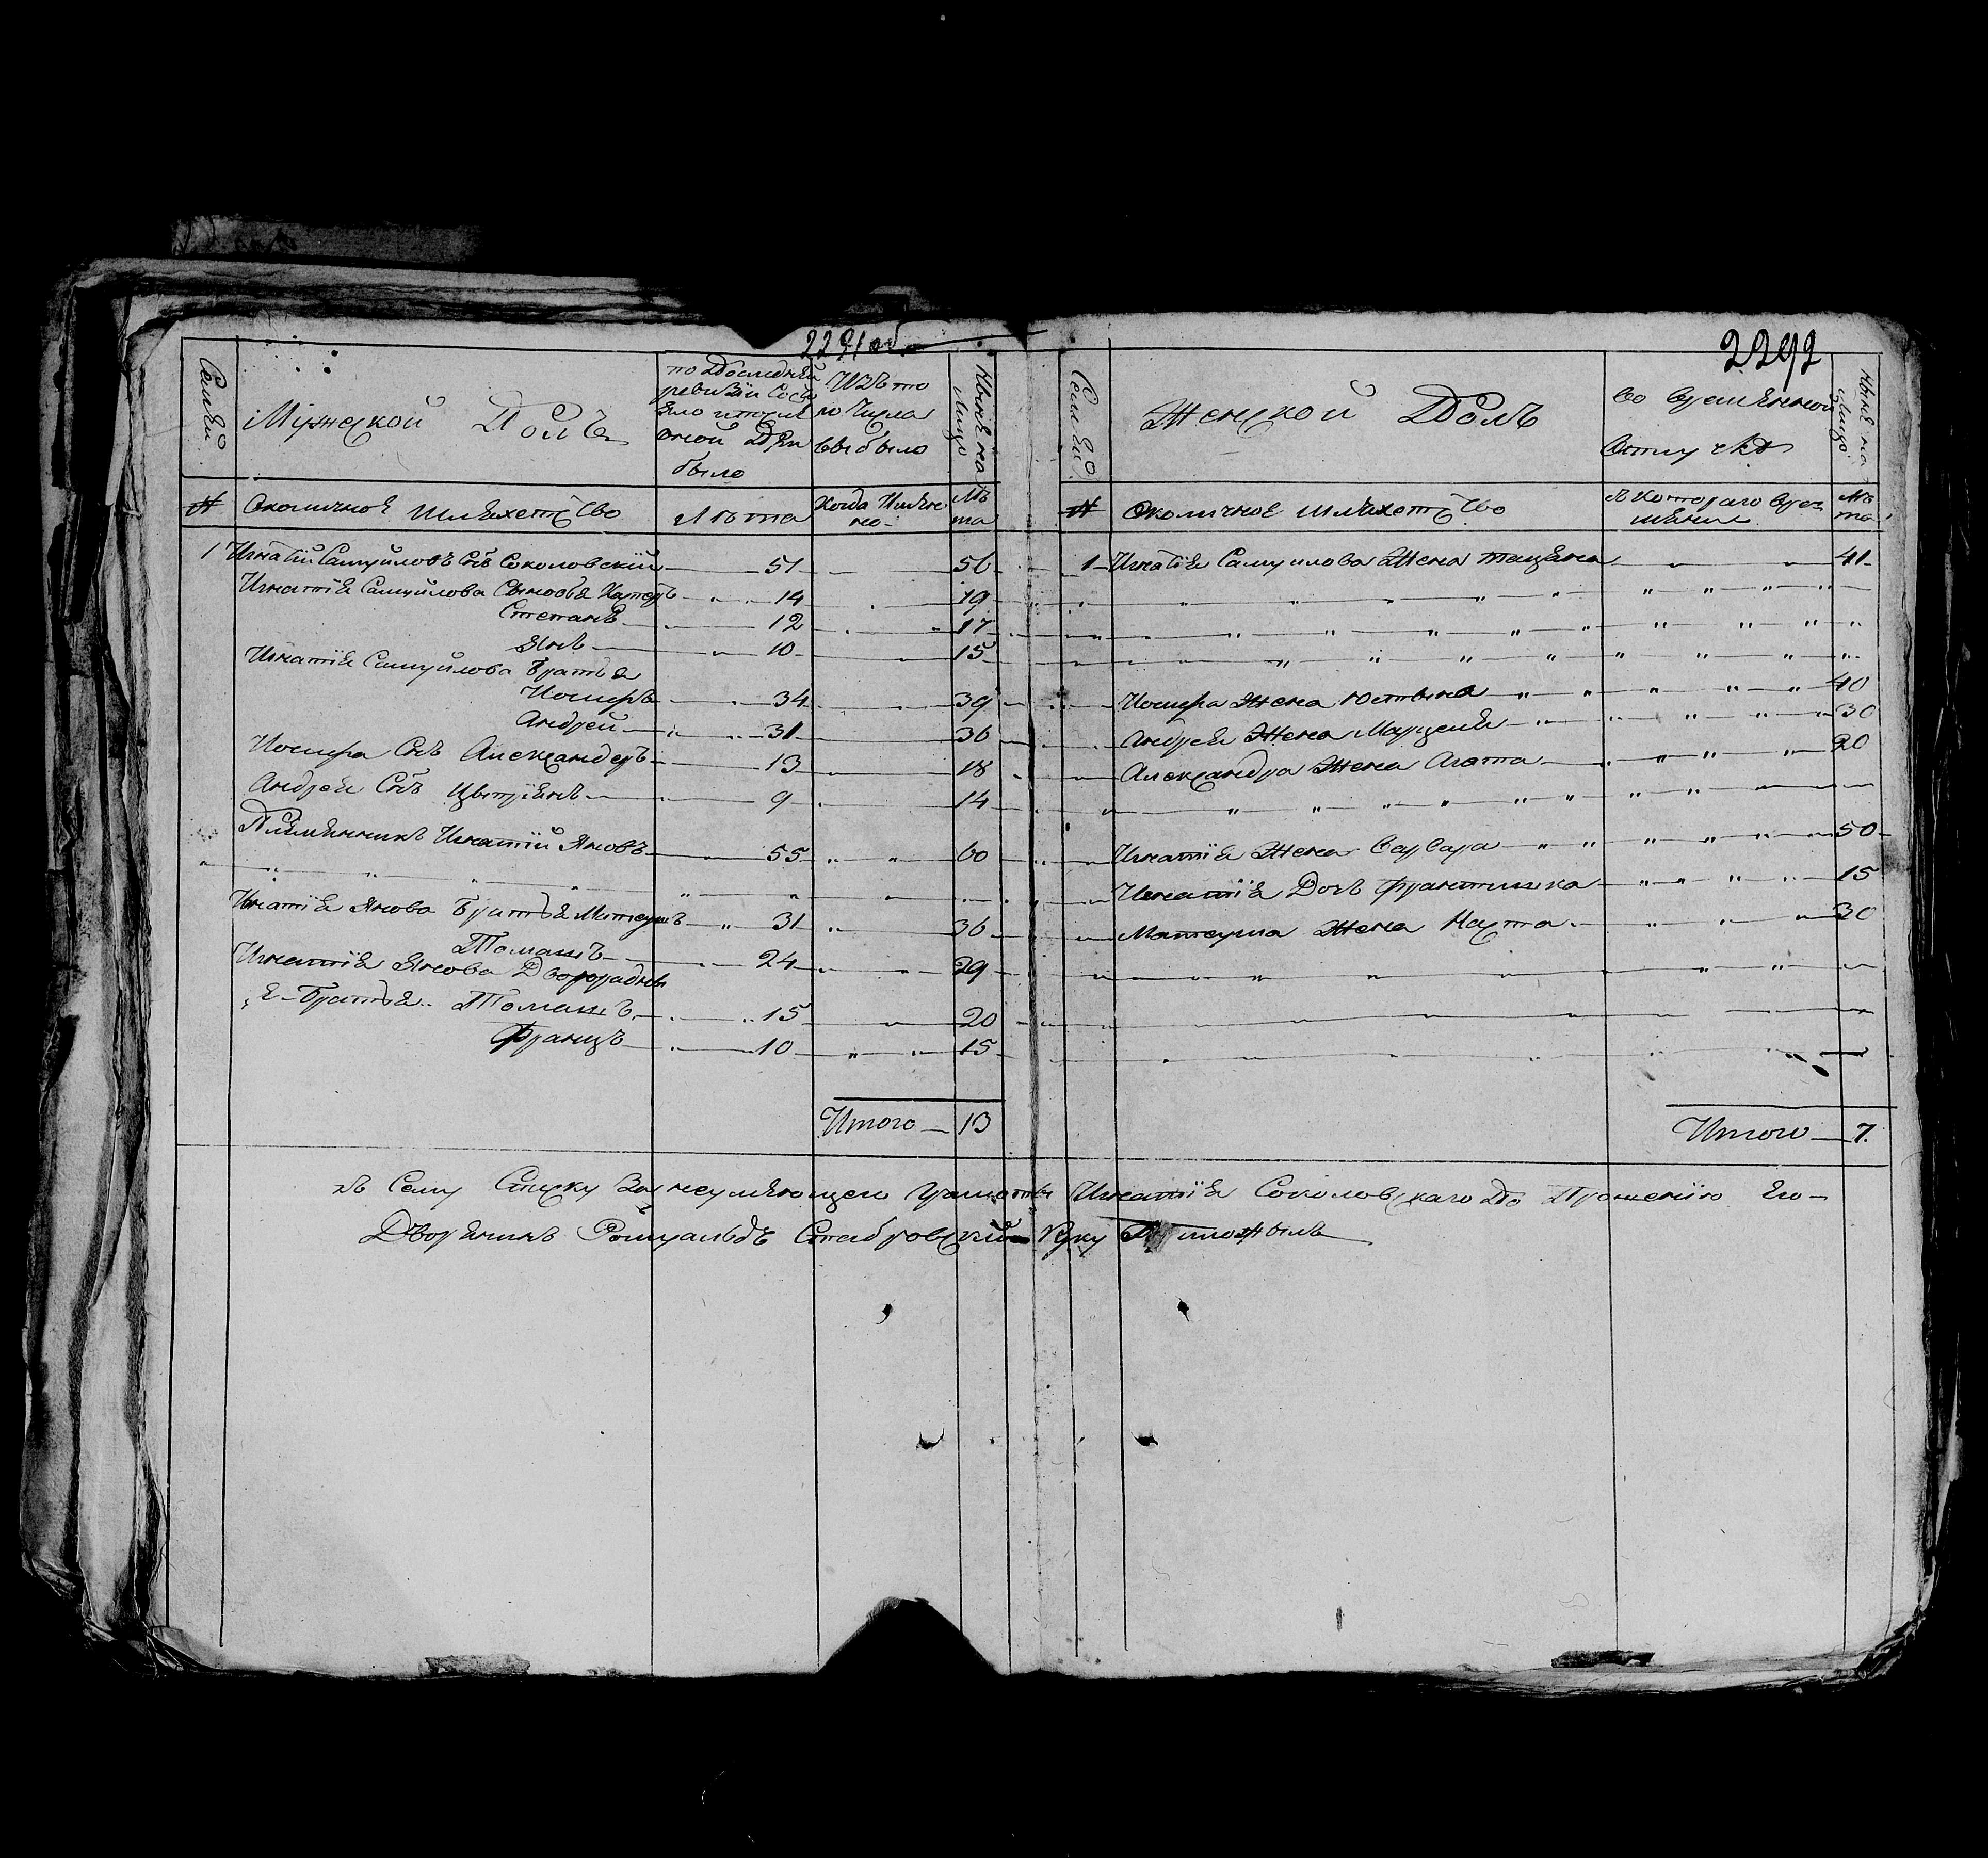 2291 об.
Семьи
Мужеской Полъ
по Последней
ревизiи Состо
яло и после
оной При
было
Изъ то
го Числа
выбыло
Ныне на
лицо
№
Околичное Шляхетство
Лѣта
Когда Имянно
Лѣ
та
1 Игнатiй Самуйловъ Снъ Соколовскiй 51 56
Игнатiя Самуйлова Сыновья Кацперъ 14 19
Степанъ 12 17
Янъ 10 15
Игнатiя Самуйлова Братья
Iосифъ 34 39
Андрей 31 36
Iосифа Снъ Александеръ 13 18
Андрея Снъ 9 14
Племянникъ Игнатiй Яновъ 55 60
Игнатiя Янова Братья Матеушъ 31 36
Томашъ 24 29
Игнатiя Янова Двоюродны
е Братья Томашъ 15 20
Францъ 10 15
Итого 13
2292
Семьи
Женской Полъ
во временной
отлучке
Ныне на
лицо
№
Околичное Шляхетство
съ Котораго вре
мени
Лѣ
та
1 Игнатiя Самуилова Жена 41
Iосифа Жена Юстына 40
Андрея Жена 30
Александра Жена Агата 20
Игнатiя Жена Варвара 50
Игнатiя Дочь Францишка 15
Матеуша Жена Марта 30
Итого 7.
Къ Сему Списку За неумеющего Грамоты Игнатiя Соколовскаго По Прошенiю Его
Дворянинъ Ромуальдъ Стабровскiй Руку Приложилъ